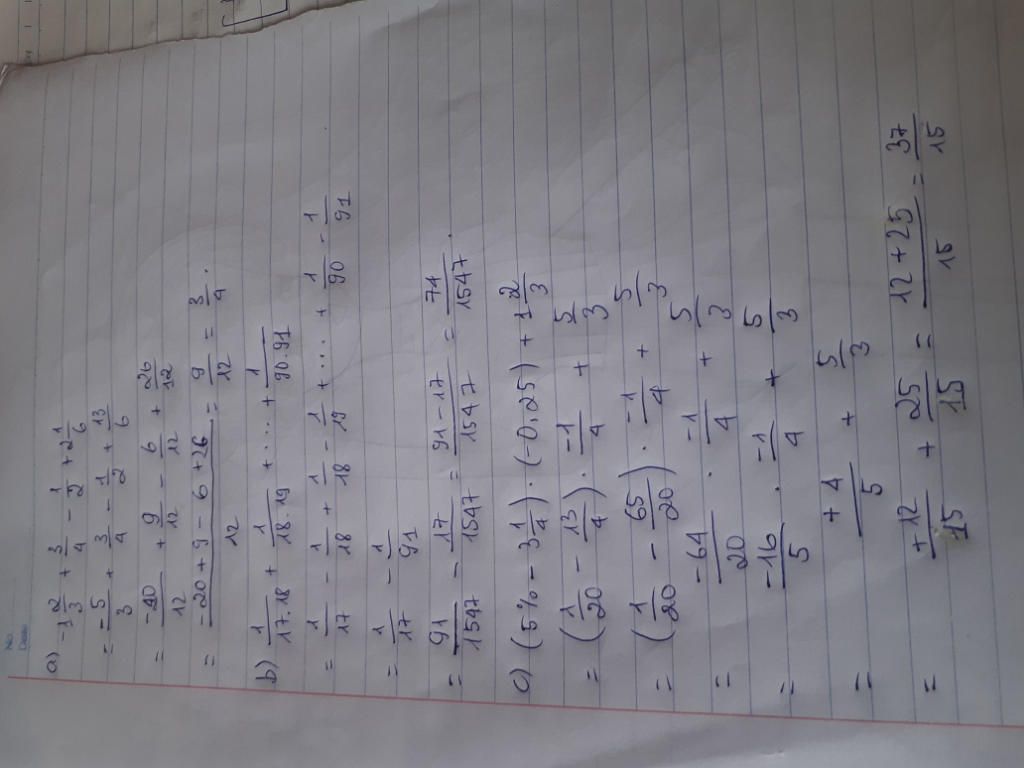 No.
Date
a) -1 2/3 + 3/4 - 1/2 + 2 1/6
= -5/3 + 3/4 - 1/2 + 13/6
= -20/12 + 9/12 - 6/12 + 26/12
= (-20 + 9 - 6 + 26)/12 = 9/12 = 3/4.
b) 1/17.18 + 1/18.19 + .... + 1/90.91
= 1/17 - 1/18 + 1/18 - 1/19 + .... + 1/90 - 1/91
= 1/17 - 1/91
= 91/1547 - 17/1547 = (91 - 17)/1547 = 74/1547.
c) (5% - 3 1/4) . (-0,25) + 1 2/3
= (1/20 - 13/4) . -1/4 + 5/3
= (1/20 - 65/20) . -1/4 + 5/3
= -64/20 . -1/4 + 5/3
= -16/5 . -1/4 + 5/3
= +4/5 + 5/3
= +12/15 + 25/15 = (12 + 25)/15 = 37/15